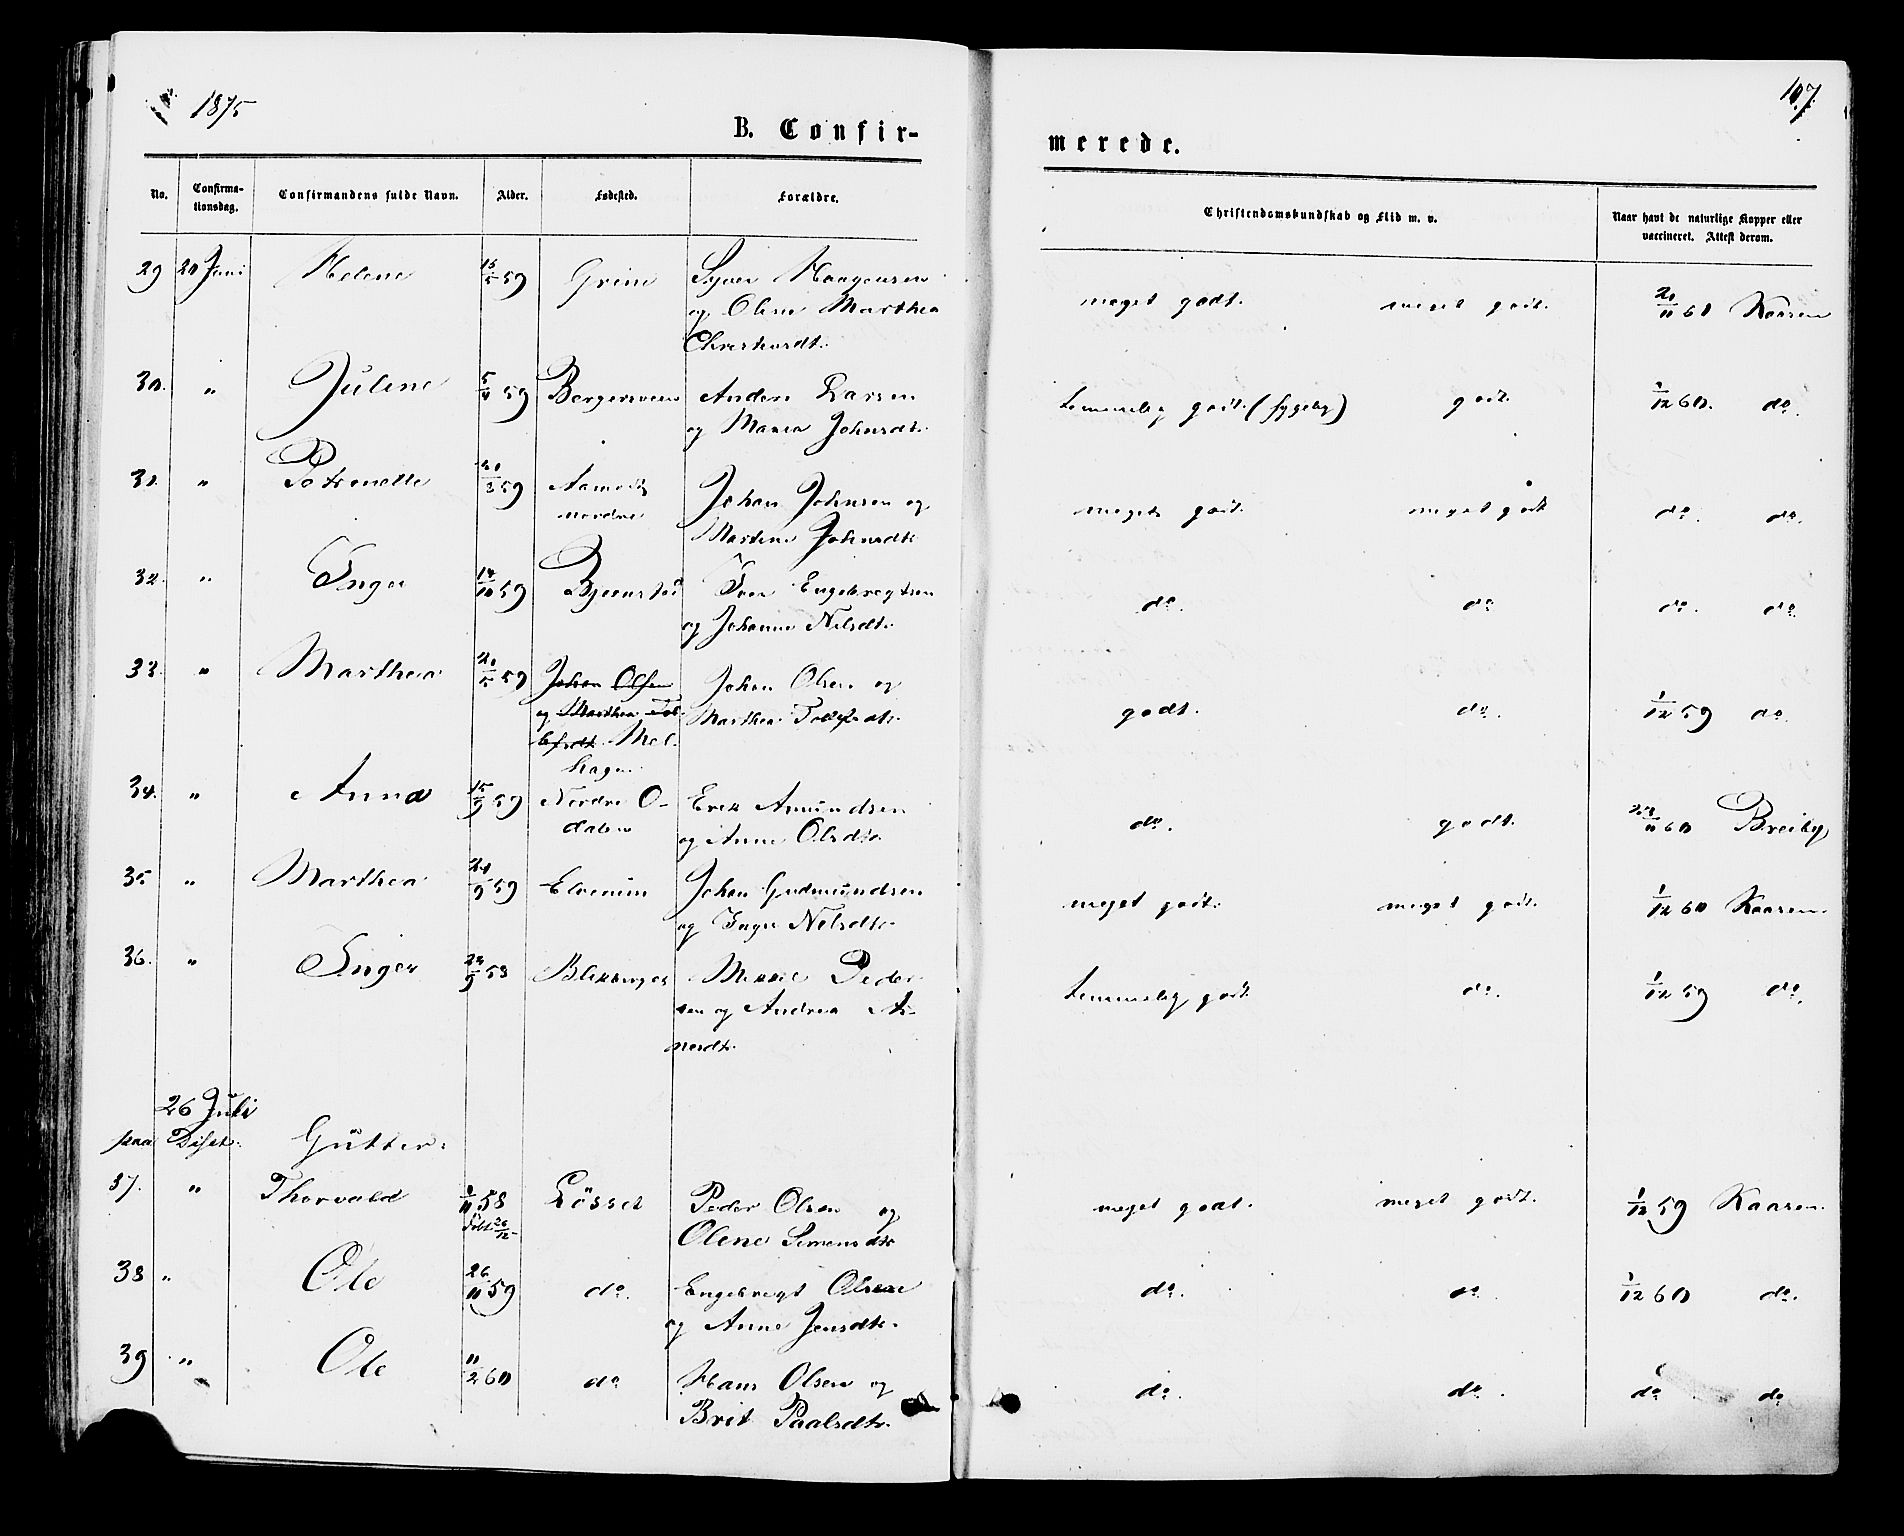 1875
107
B. Confir-
merede.
No.
Confirma-
tionsdag.
Confirmandens fulde Navn.
Alder.
Fødested.
Forældre.
Christendomskundskab og Flid m. v.
Naar havt de naturlige Kopper eller
vaccineret. Attest derom.
29 20 Juni Helene 15/5 59 Grini Syver Haagensen
og Oline Marthea
meget godt. meget godt. 20/11 60 Kaasen
30. " Juline 5/4 59 Bergersveen Anders Larsen
og Maria Johnsdtr.
temmelig godt. (sygelig) godt. 1/12 60. do.
31. " Petronelle 20/3 59 Aamodt
nordre
Johan Johnsen og
Martine Johnsdtr
meget godt. meget godt do. do.
32. " Inger 14/10 59 Bjørnstad Iver Engebregtsen
og Johanne Nilsdtr.
do. do do. do
33. " Marthea 20/5 59 Johan Olsen
og Marthea Tol-
lefsdt. Mel-
hagen
Johan Olsen og
Marthea Tollefsdtr.
godt. do. 1/12 59 do.
34. " Anna 15/9 59 Nordre O-
dalen
Erik Amundsen
og Anne Olsdtr.
do. godt. 24/11 60 Breiby
35. " Marthea 24/9 59 Elverum Johan Gudmundsen
og Inger Nilsdtr.
meget godt. meget godt. 1/12 60 Kaasen.
36. " Inger 22/9 58 Blikberget Mikkel Peder-
sen og Andrea Ar-
nesdtr.
temmelig godt do. 1/12 59 do.
26 Juli
paa Diset. Gutter.
37. " Thorvald 1/11 58
født 26/12
Løsset Peder Olsen og
Olene Simensdtr
meget godt. meget godt. 1/12 59 Kaasen.
38 " Ole 26/11 59 do. Engebregt Olsen
og Anne Jensdtr.
do. do. 1/12 60 do.
39 " Ole 11/2 60 do Hans Olsen og
Brit Paalsdtr.
do. do. do do